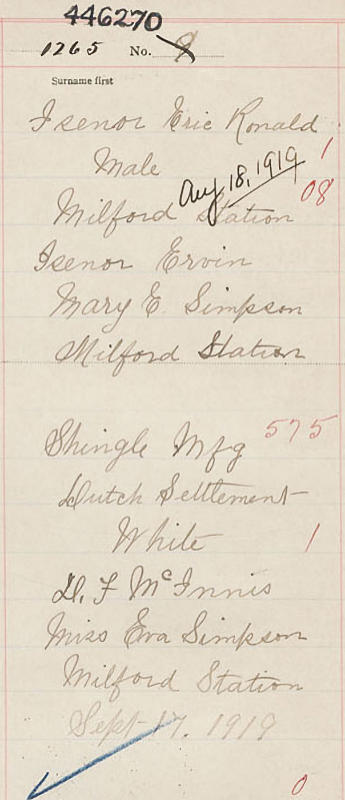 446270
1265 No. 9
Surname first
Isenor Eric Ronald
1
Male
Aug 18, 1919
08
Milford Station
Isenor Ervin
Mary E. Simpson
Milford Station
575
Shingle Mfg
Dutch Settlement
White 1
D. F McInnis
Miss Eva Simpson
Milford Station
Sept 17, 1919
0